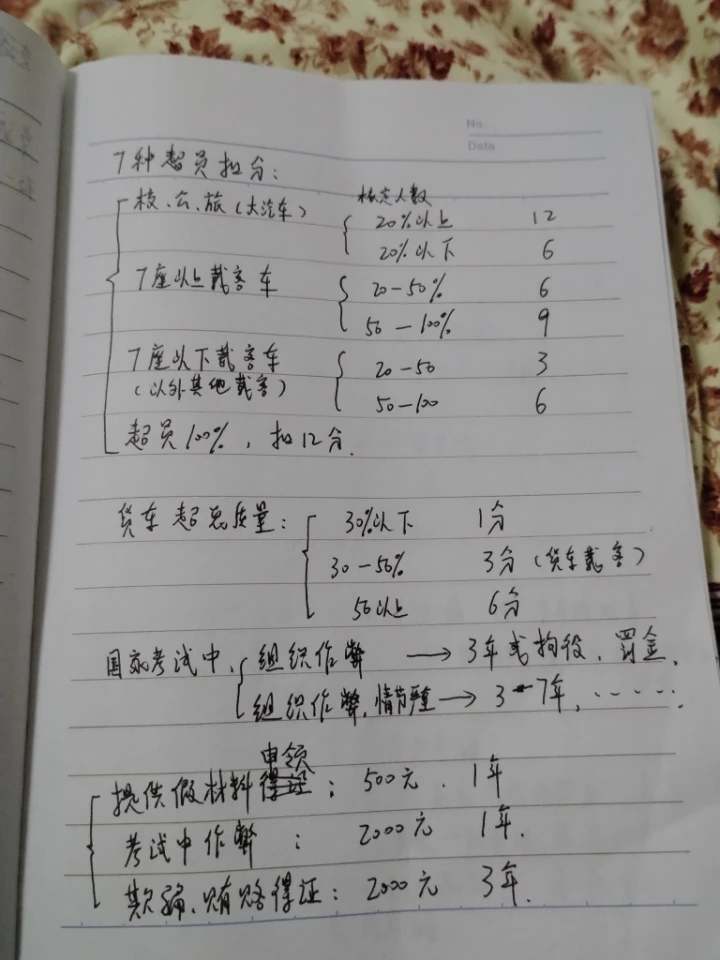 No.
Date
7种超员扣分:
校、公、旅(大汽车) 核定人数
20%以上 12
20%以下 6
7座以上载客车 20-50% 6
50-100% 9
7座以下载客车 20-50 3
(以外其他载客) 50-100 6
超员100%,扣12分.
货车超 质量: 30%以下 1分
30-50% 3分(货车载客)
50以上 6分
国家考试中、组织作弊 → 3年或拘役、罚金、
组织作弊,情节严重 → 3-7年,……
申领
提供假材料得证: 500元、1年
考试中作弊: 2000元 1年.
欺骗、贿赂得证: 2000元 3年.